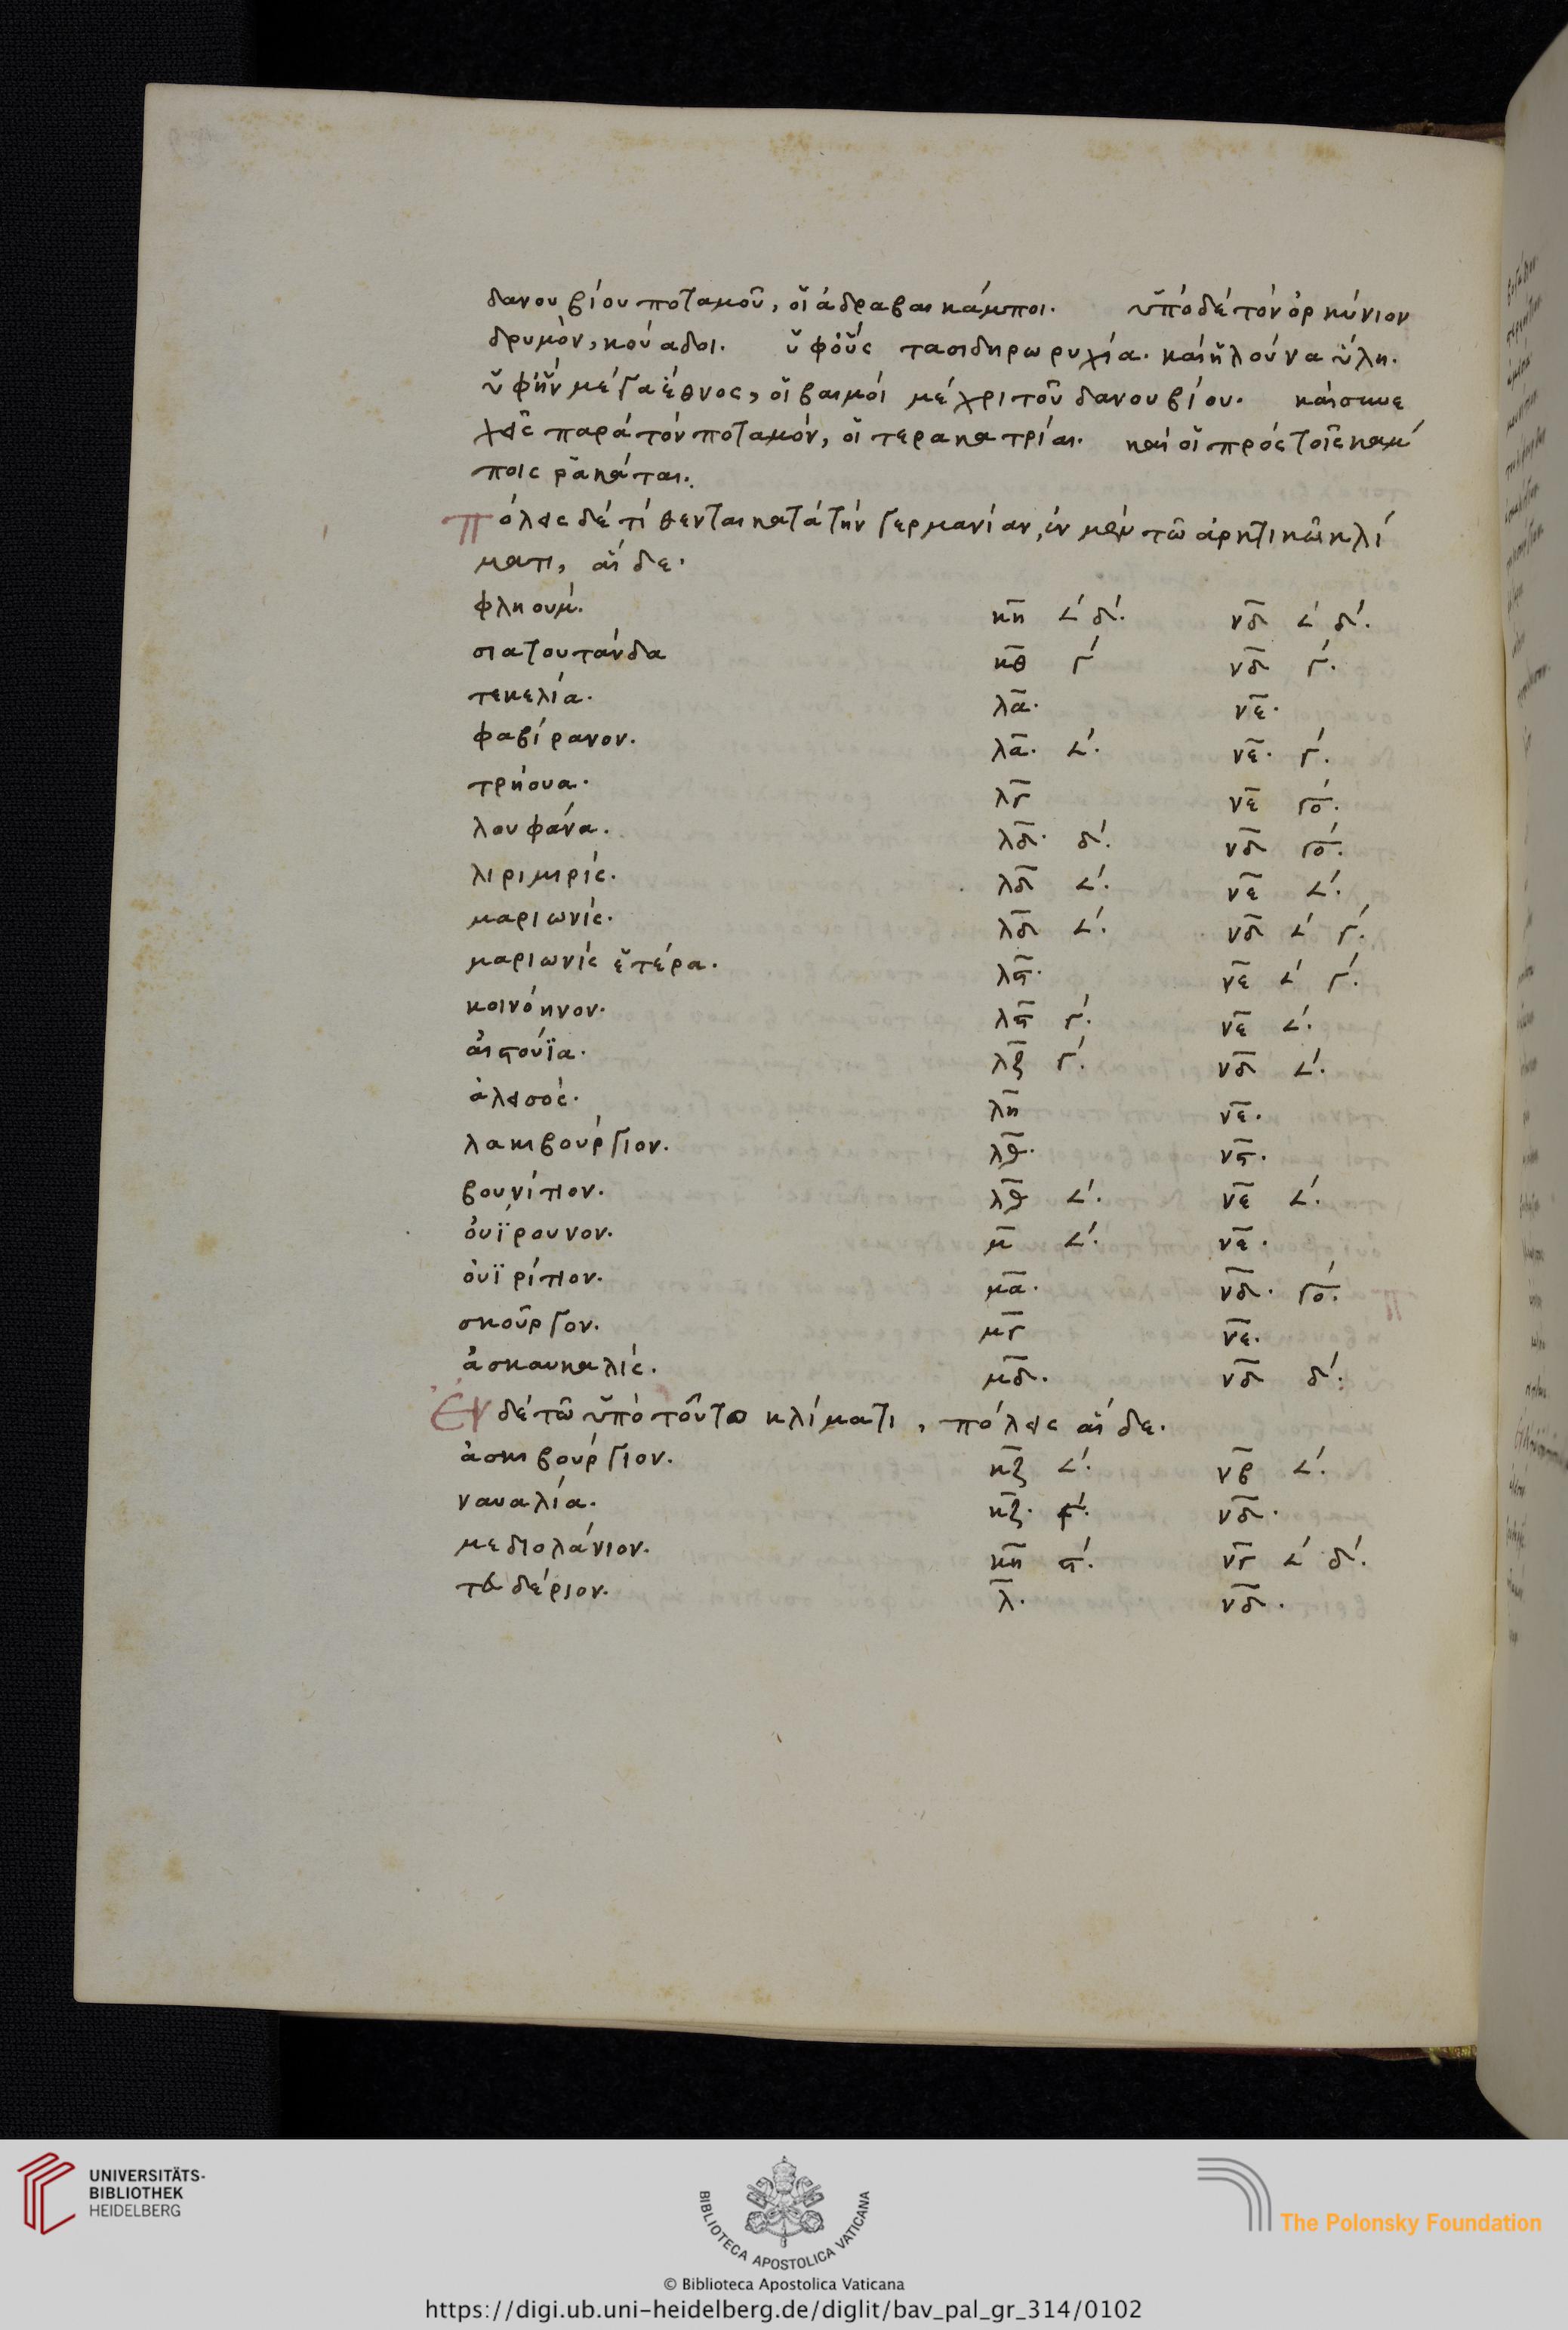 δανουβίου ποταμοῦ, οἵ ἀδραβαικάμποι. ὕπὸ δὲ τὸν ὀρκύνιον
δρυμὸν, κούαδοι. ὕφ᾽ οὕς τὰ σιδηρωρυχία. καὶ ἥ λούνα ὕλη.
ὕφ᾽ ἥν μέγα ἔθνος, οἵ βαιμοί μέχρι τοῦ δανουβίου. καὶ συνε
χεῖς παρὰ τὸν ποταμόν, οἵ τερακατρίαι. καὶ οἵ πρὸς τοῖς κάμ
ποις ῥακάται.
πόλεις δὲ τίθενται κατὰ τὴν γερμανίαν, ἐν μὲν τῶ ἀρκτικῶ κλί
ματι, αἵδε.
φληούμ. κη ∠ δ. νδ ∠ δ.
σιατουτάνδα κθ γ νδ γ.
τεκελία. λα. νε.
φαβίρανον. λα. ∠. νε. γ.
τρήουα. λγ νε γο.
λουφάνα. λδ. δ. νδ γο.
λιριμιρίς. λδ ∠. νε ∠.
μαριωνίς. λδ ∠. νδ ∠ γ.
μαριωνίς ἕτέρα. λϛ. νε ∠ γ.
κοινόηνον. λϛ γ. νε ∠.
ἀιστούϊα. λζ γ. νδ ∠.
ἀλεισός. λη νε.
λακιβούργιον. λθ. νϛ.
βουνίτιον. λθ ∠. νε ∠.
ὀυΐρουνον. μ ∠. νε.
ὀυϊρίτιον. μα. νδ. γο.
σκοῦργον. μγ νε.
ἀσκαυκαλίς. μδ. νδ δ.
Ἐν δὲ τῶ ὕπὸ τοῦτο κλίματι, πόλεις αἵδε.
ἀσκιβούργιον. κζ ∠. νβ ∠.
ναυαλία. κζ. γ. νδ.
μεδιολάνιον. κη ϛ. νγ ∠ δ.
τευδέριον. λ. νδ.
UNIVERSITÄTS-
BIBLIOTHEK
HEIDELBERG
BIBLIOTECA APOSTOLICA VATICANA
The Polonsky Foundation
© Biblioteca Apostolica Vaticana
https://digi.ub.uni-heidelberg.de/diglit/bav_pal_gr_314/0102